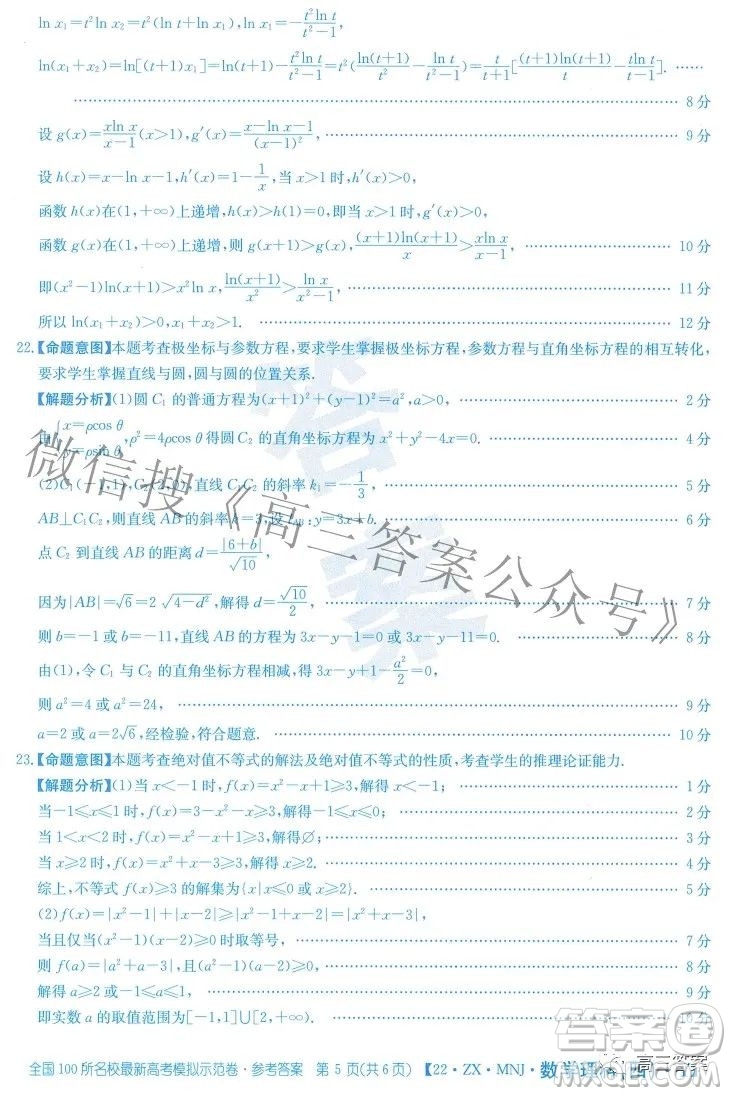 ln x₁=t²ln x₂=t²(ln t+ln x₁),ln x₁=-\frac{t²ln t}{t²-1},
ln(x₁+x₂)=ln[(t+1)x₁]=ln(t+1)-\frac{t²ln t}{t²-1}=t²(\frac{ln(t+1)}{t²}-\frac{ln t}{t²-1})=\frac{t}{t+1}[\frac{(t+1)ln(t+1)}{t}-\frac{tln t}{t-1}]. ……
…… 8 分
设 g(x)=\frac{xln x}{x-1}(x>1),g′(x)=\frac{x-ln x-1}{(x-1)²}, …… 9 分
设 h(x)=x-ln x-1,h′(x)=1-\frac{1}{x},当 x>1 时,h′(x)>0,
函数 h(x)在(1,+∞)上递增,h(x)>h(1)=0,即当 x>1 时,g′(x)>0,
函数 g(x)在(1,+∞)上递增,则 g(x+1)>g(x),\frac{(x+1)ln(x+1)}{x}>\frac{xln x}{x-1}, …… 10 分
即(x²-1)ln(x+1)>x²ln x,\frac{ln(x+1)}{x²}>\frac{ln x}{x²-1}, …… 11 分
所以 ln(x₁+x₂)>0. …… 12 分
22.【命题意图】本题考查极坐标与参数方程,要求学生掌握极坐标方程,参数方程与直角坐标方程的相互转化,
要求学生掌握直线与圆,圆与圆的位置关系.
【解题分析】(1)圆 C₁ 的普通方程为(x+1)²+(y-1)²=a²,a>0, …… 2 分
由{x=ρcos θ y=ρsin θ,ρ²=4ρcos θ得圆 C₂ 的直角坐标方程为 x²+y²-4x=0. …… 4 分
(2)C₁(-1,1),C₂(2,0),直线 C₁C₂ 的斜率 k₁=-\frac{1}{3}, …… 5 分
AB⊥C₁C₂,则直线 AB 的斜率 k=3,设 l_{AB}:y=3x+b. …… 6 分
点 C₂ 到直线 AB 的距离 d=\frac{|6+b|}{√10},
因为|AB|=√6=2√(4-d²),解得 d=\frac{√10}{2}, …… 7 分
则 b=-1 或 b=-11,直线 AB 的方程为 3x-y-1=0 或 3x-y-11=0. …… 8 分
由(1),令 C₁ 与 C₂ 的直角坐标方程相减,得 3x-y+1-\frac{a²}{2}=0,
则 a²=4 或 a²=24, …… 9 分
a=2 或 a=2√6,经检验,符合题意. …… 10 分
23.【命题意图】本题考查绝对值不等式的解法及绝对值不等式的性质,考查学生的推理论证能力.
【解题分析】(1)当 x<-1 时,f(x)=x²-x+1≥3,解得 x<-1; …… 1 分
当-1≤x≤1 时,f(x)=3-x²-x≥3,解得-1≤x≤0; …… 2 分
当 1<x<2 时,f(x)=x²-x+1≥3,解得∅; …… 3 分
当 x≥2 时,f(x)=x²+x-3≥3,解得 x≥2; …… 4 分
综上,不等式 f(x)≥3 的解集为{x|x≤0 或 x≥2}. …… 5 分
(2)f(x)=|x²-1|+|x-2|≥|x²-1+x-2|=|x²+x-3|,
当且仅当(x²-1)(x-2)≥0 时取等号, …… 7 分
则 f(a)=|a²+a-3|,当(a²-1)(a-2)≥0, …… 8 分
解得 a≥2 或-1≤a≤1, …… 9 分
即实数 a 的取值范围为[-1,1]∪[2,+∞). …… 10 分
全国 100 所名校最新高考模拟示范卷·参考答案 第 5 页(共 6 页) 【22·ZX·MNJ·数学理科,四
微信搜《高三答案公众号》
答案
高三答案
答案圈
MXQE.COM